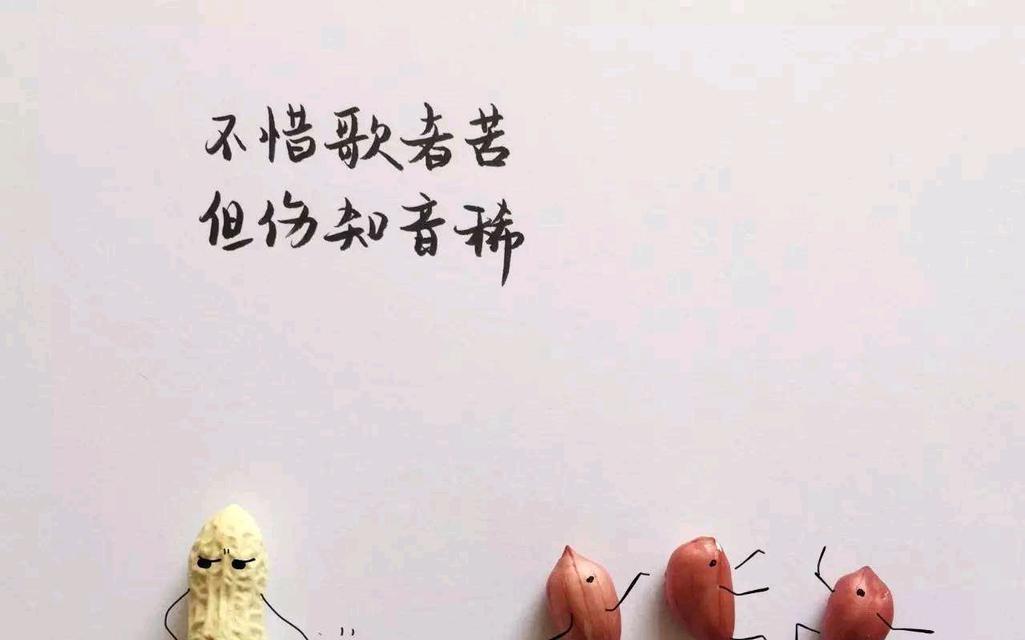 不惜歌者苦
但伤知音稀